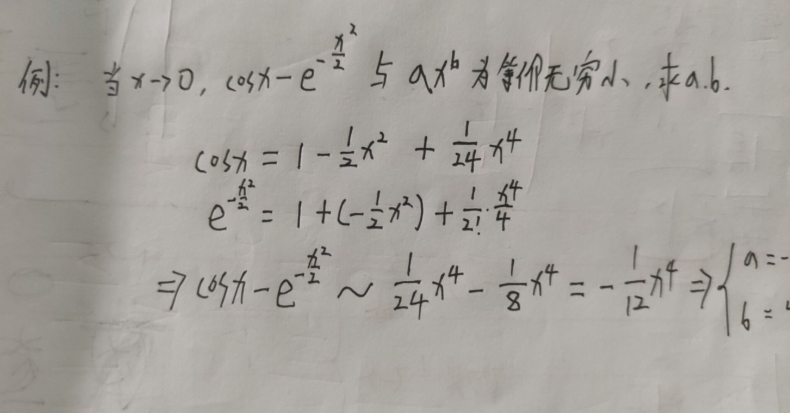 例: 当x→0, cosx-e^{-\frac{x^2}{2}} 与 ax^b 为等价无穷小, 求a.b.
cosx = 1 - \frac{1}{2}x^2 + \frac{1}{24}x^4
e^{-\frac{x^2}{2}} = 1 + (-\frac{1}{2}x^2) + \frac{1}{2!}·\frac{x^4}{4}
⇒ cosx-e^{-\frac{x^2}{2}} ~ \frac{1}{24}x^4 - \frac{1}{8}x^4 = -\frac{1}{12}x^4 ⇒ { a=-
b =